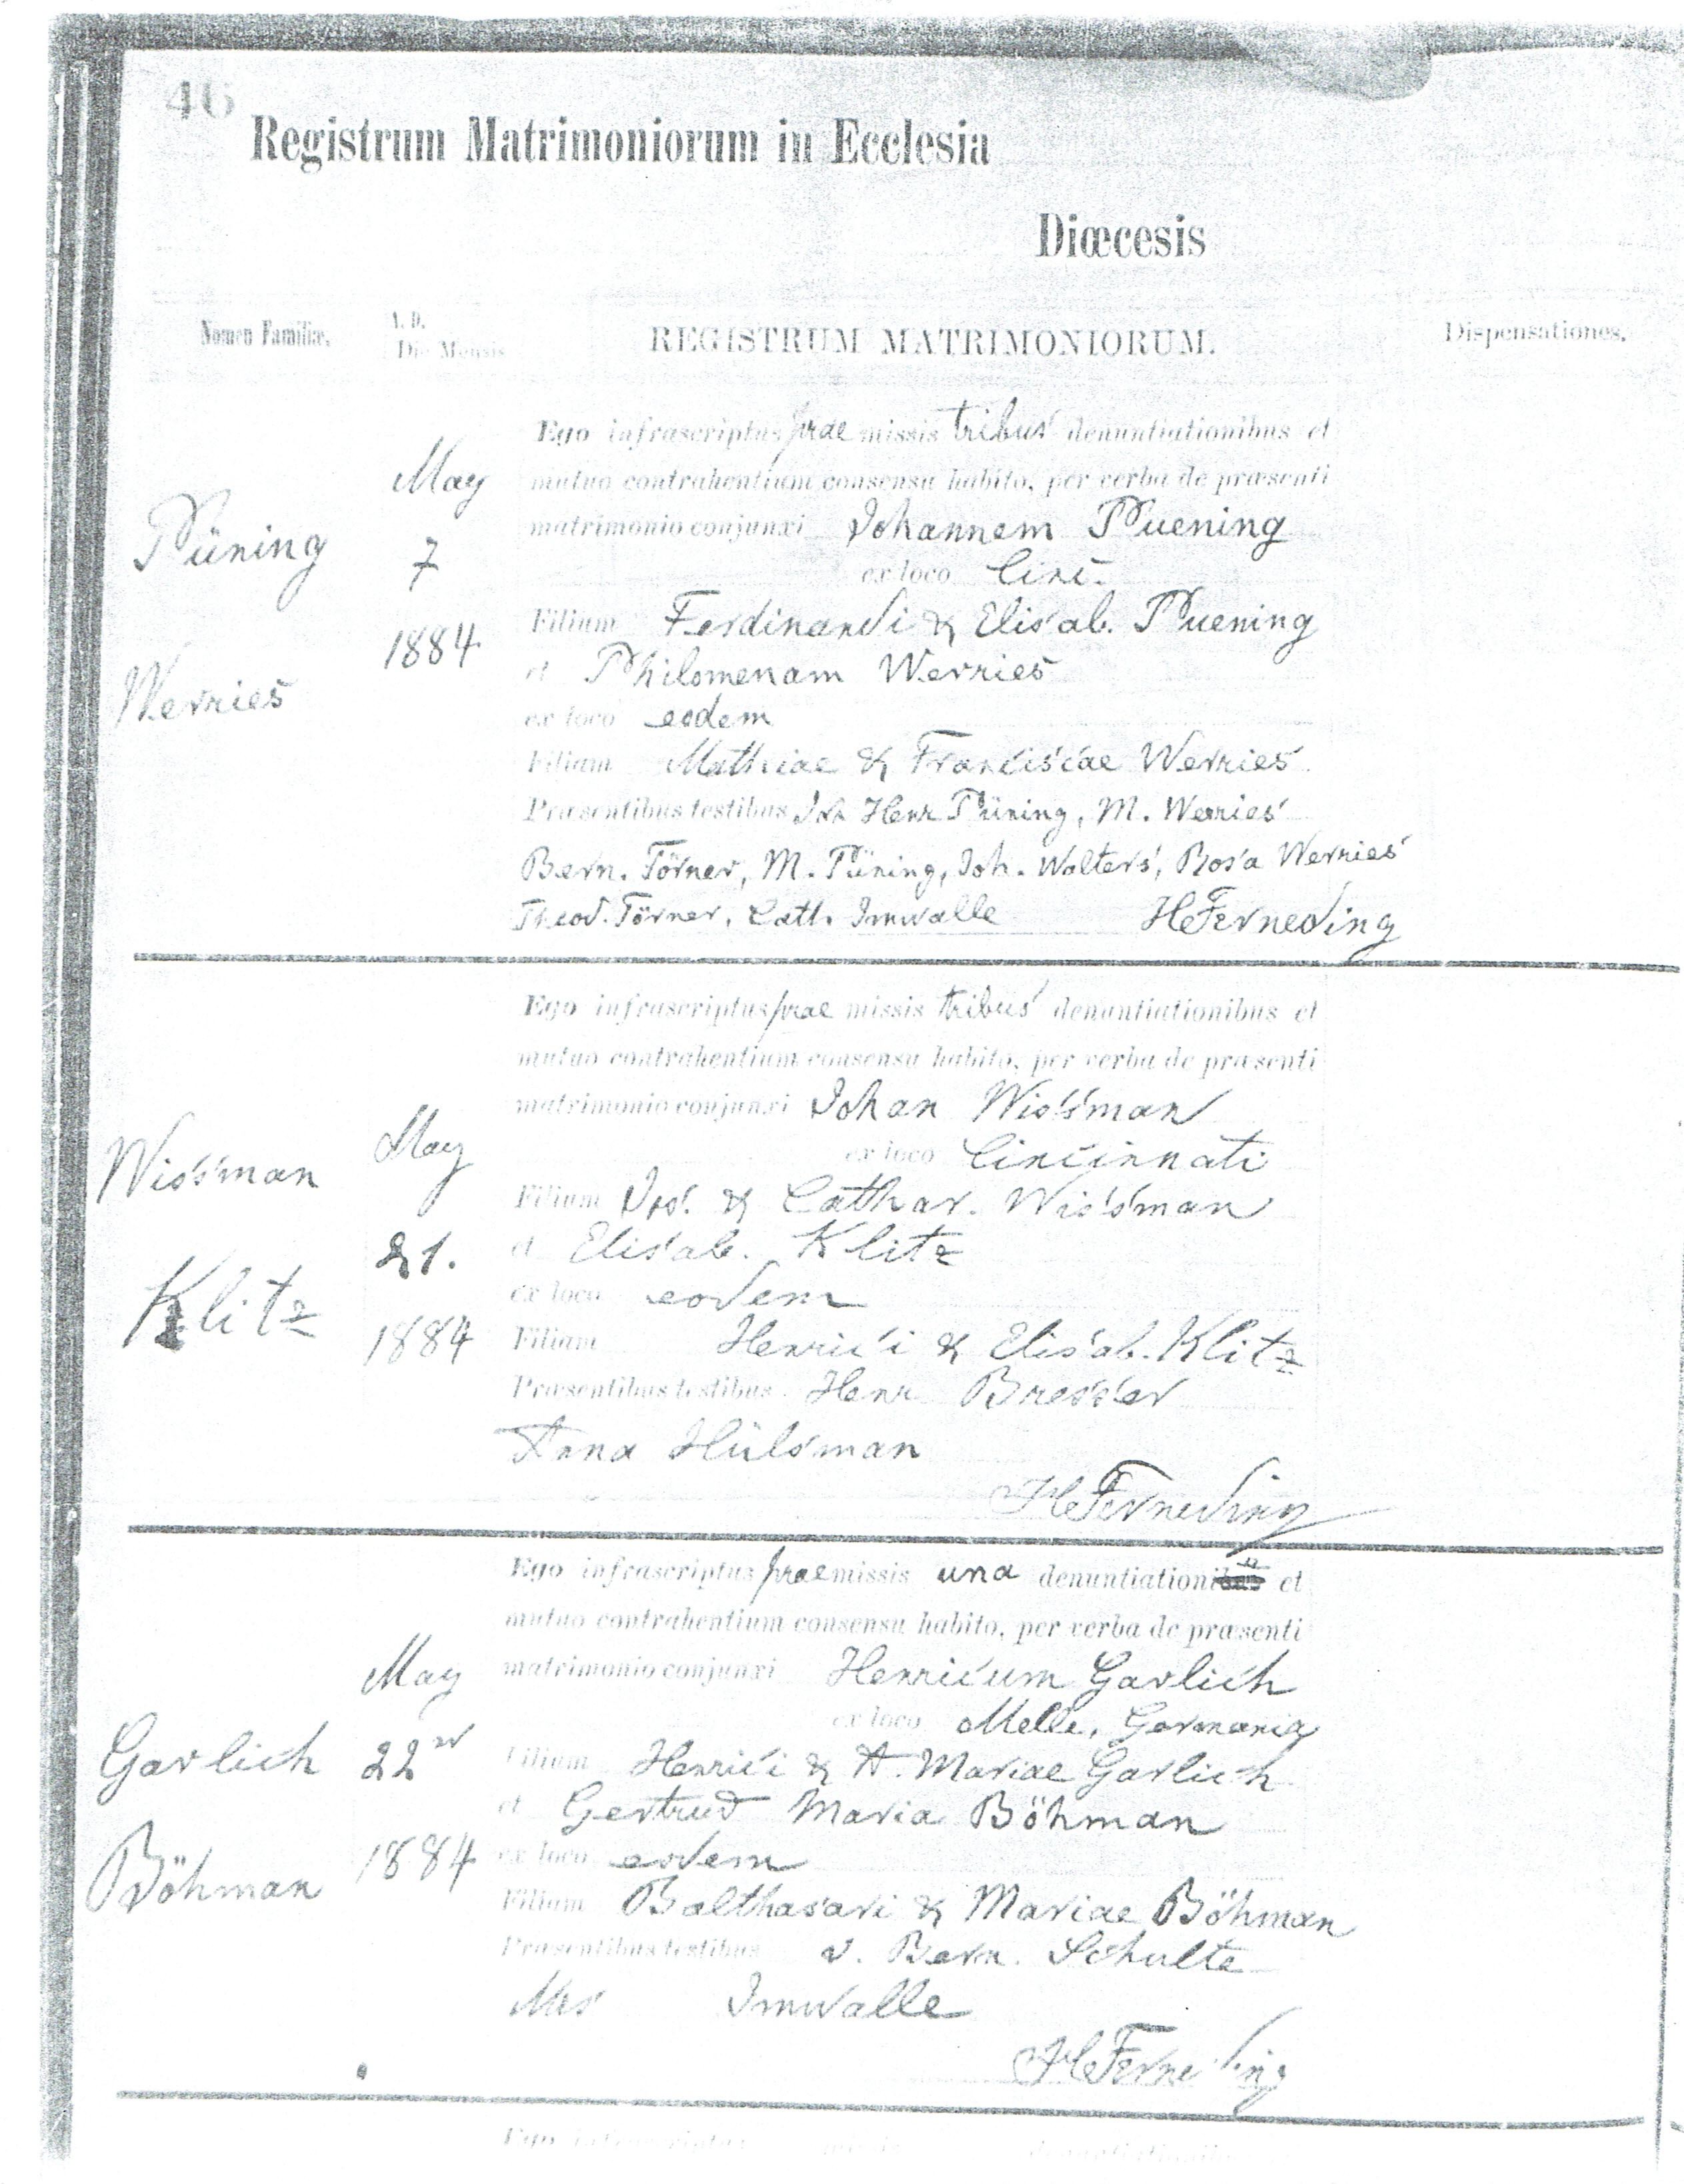 46
Registrum Matrimoniorum in Ecclesia
Diœcesis
Nomen Familiæ.
A. D.
Die Mensis
REGISTRUM MATRIMONIORUM.
Dispensationes.
Püning
Werries
May
7
1884
Ego infrascriptus prae missis tribus denuntiationibus et
mutuo contrahentium consensu habito, per verba de præsenti
matrimonio conjunxi Johannem Puening
ex loco Cinc.
Filium Ferdinandi & Elisab. Puening
et Philomenam Werries
ex loco eodem
Filiam Mathiae & Franciscae Werries
Præsentibus testibus Joh Henr Püning, M. Werries
Bern. Törner, M. Püning, Joh. Wolters, Rosa Werries
Theod. Törner, Cath. Imwalle HFerneding
Wissman
Klitz
May
21.
1884
Ego infrascriptus prae missis tribus denuntiationibus et
mutuo contrahentium consensu habito, per verba de præsenti
matrimonio conjunxi Johan Wissman
ex loco Cincinnati
Filium Jos. & Cathar. Wissman
et Elisab. Klitz
ex loco eodem
Filiam Henrici & Elisab. Klitz
Præsentibus testibus Henr Bresser
Anna Hülsman
HFerneding
Garlich
Böhman
May
22
1884
Ego infrascriptus prae missis una denuntiatione et
mutuo contrahentium consensu habito, per verba de præsenti
matrimonio conjunxi Henricum Garlich
ex loco Melle, Germania
Filium Henrici & A. Mariae Garlich
et Gertrud Maria Böhman
ex loco eodem
Filiam Balthasari & Mariae Böhman
Præsentibus testibus Bern. Schulte
Mrs Imwalle
HFerneding
Ego infrascriptus missis denuntiationibus